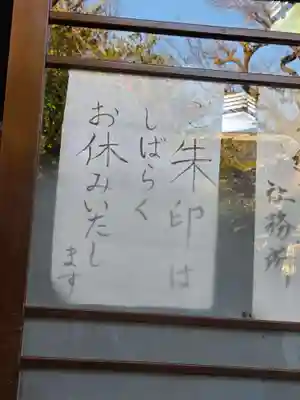 ご朱印は
しばらく
お休みいたし
ます
社務所